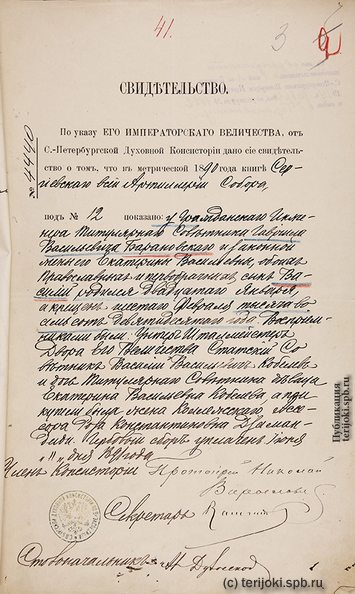 41.
3
СВИДѢТЕЛЬСТВО.
По указу ЕГО ИМПЕРАТОРСКАГО ВЕЛИЧЕСТВА, отъ
С.-Петербургской Духовной Консисторіи дано сіе свидѣтель-
ство о томъ, что въ метрической 1890 года книгѣ Сер-
№ 4440
гіевскаго всей Артиллеріи Собора,
подъ № 12 показано: у Гражданскаго Инже-
нера Титулярнаго Совѣтника Гавріила
Васильевича Барановскаго и законной
жены его Екатерины Васильевны, обоихъ
православныхъ и первобрачныхъ сынъ Ва-
силій родился двадцатаго Января
и крещенъ шестаго Февраля тысяча во-
семьсотъ девяностаго года. Воспріем-
никами были: Унтеръ Шталмейстеръ
Двора Его Величества Статскій Со-
вѣтникъ Василій Васильевичъ
и Титулярнаго Совѣтника
Екатерина Васильевна а при
купели была жена Коллежскаго Асес-
сора Константиновна
Гербовый сборъ уплаченъ Іюня
дня 1890 года
Членъ Консисторіи Протоіерей Николай
Секретарь
Столоначальникъ
Публикация
terijoki.spb.ru
(c) terijoki.spb.ru